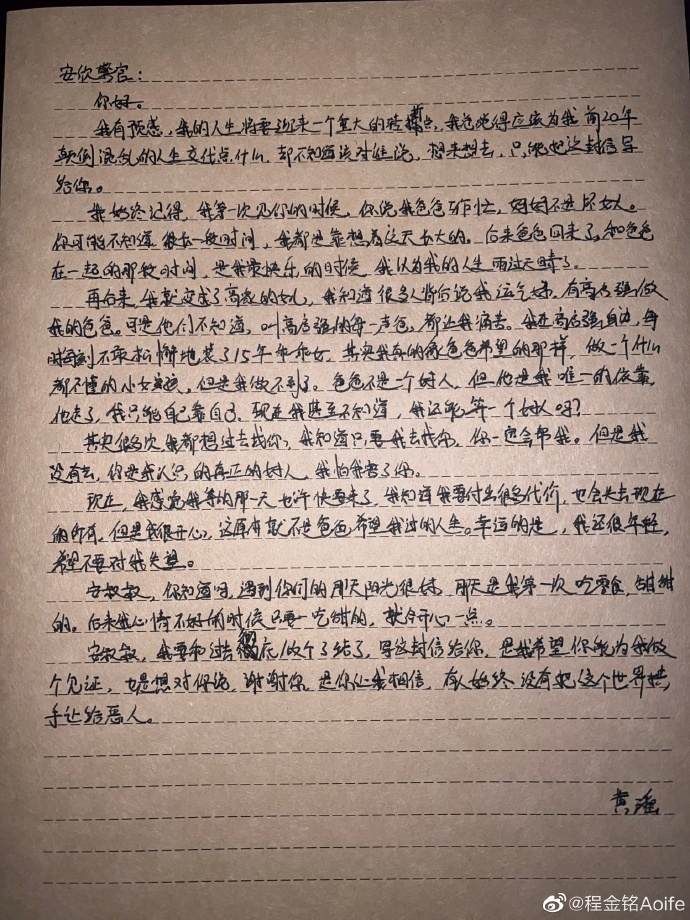 安欣警官：
你好。
我有预感，我的人生将要迎来一个重大的转折点，我总觉得应该为我前20年
颠倒混乱的人生交代点什么，却不知道该对谁说，想来想去，只能把这封信写
给你。
我始终记得，我第一次见你的时候，你说我爸爸工作忙，妈妈不是坏女人。
你可能不知道很长一段时间，我都是靠想着这天长大的。后来爸爸回来了，和爸爸
在一起的那段时间，是我最快乐的时候，我以为我的人生雨过天晴了。
再后来，我就变成了高家的女儿，我知道很多人背后说我运气好，有高启强做
我的爸爸。可是他们不知道，叫高启强的每一声爸，都让我痛苦。我在高启强身边，每
时每刻不敢松懈地装了15年乖乖女。其实我真的像爸爸希望的那样，做一个什么
都不懂的小女孩，但是我做不到了。爸爸不是一个好人，但他是我唯一的依靠，
他走了，我只能自己靠自己，现在我甚至不知道，我还能算一个好人吗？
其实很多次，我都想过去找你，我知道只要我去找你，你一定会帮我。但是我
没有去，你是我认识的真正的好人，我怕我害了你。
现在，我感觉我等的那一天也许快要来了，我知道我要付出很多代价，也会失去现在
的所有，但是我很开心，这原本就不是爸爸希望我过的人生。幸运的是，我还很年轻，
希望不要对我失望。
安叔叔，你知道吗，遇到你们的那天阳光很好，那天是我第一次吃零食，甜甜
的。后来我心情不好的时候只要一吃甜的，就会开心一点。
安叔叔，我要和过去彻底做个了结了，写这封信给你，是我希望你能为我做
个见证，也是想对你说，谢谢你，是你让我相信，有人始终没有把这个世界拱
手让给恶人。
黄瑶
@程金铭Aoife